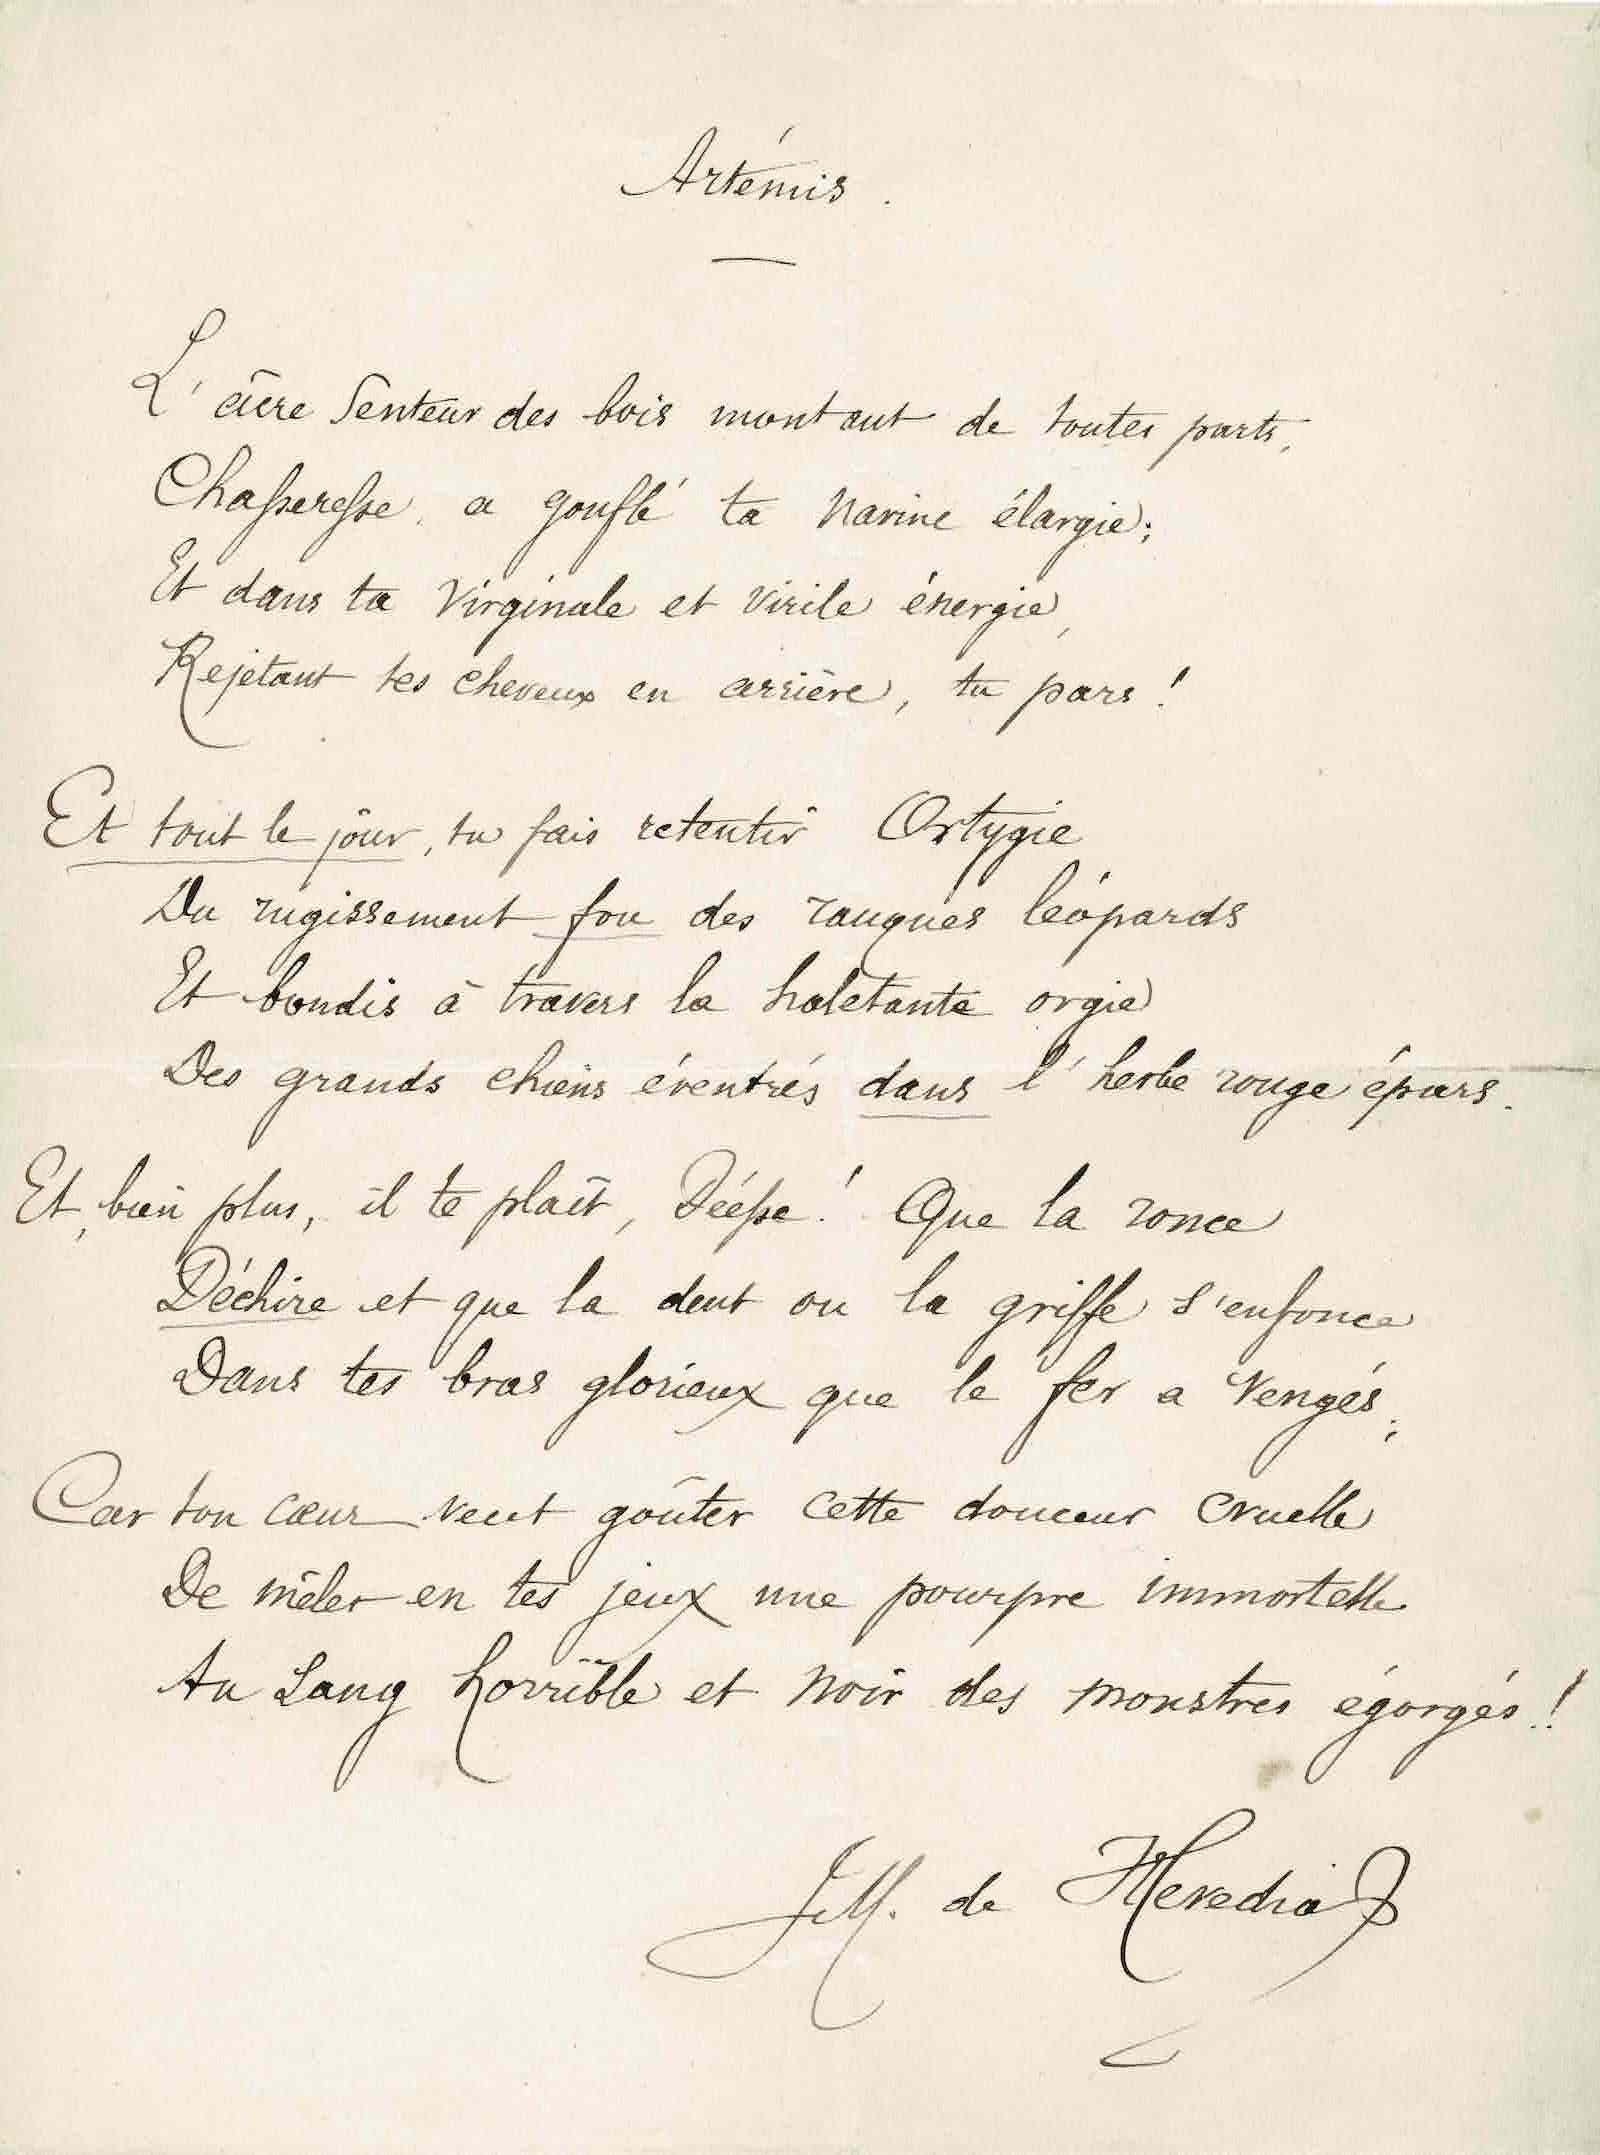 Artémis.
L'âcre senteur des bois montant de toutes parts,
Chasseresse, a gonflé ta narine élargie;
Et dans ta virginale et virile énergie,
Rejetant tes cheveux en arrière, tu pars!
Et tout le jour, tu fais retentir Ortygie
Du rugissement fou des rauques léopards
Et bondis à travers la haletante orgie
Des grands chiens éventrés dans l'herbe rouge épars.
Et, bien plus, il te plaît, Déesse! Que la ronce
Déchire et que la dent ou la griffe s'enfonce
Dans tes bras glorieux que le fer a vengés;
Car ton cœur veut goûter cette douceur cruelle
De mêler en tes jeux une pourpre immortelle
Au sang horrible et noir des monstres égorgés!
JM. de Heredia